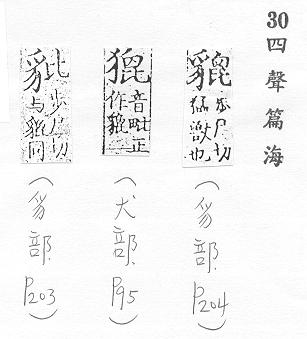 30 四聲篇海
貔 步尸切猛獸也
(豸部 P204)
音毗正作貔
(犬部 P95)
豼 步尸切与貔同
(豸部 P203)